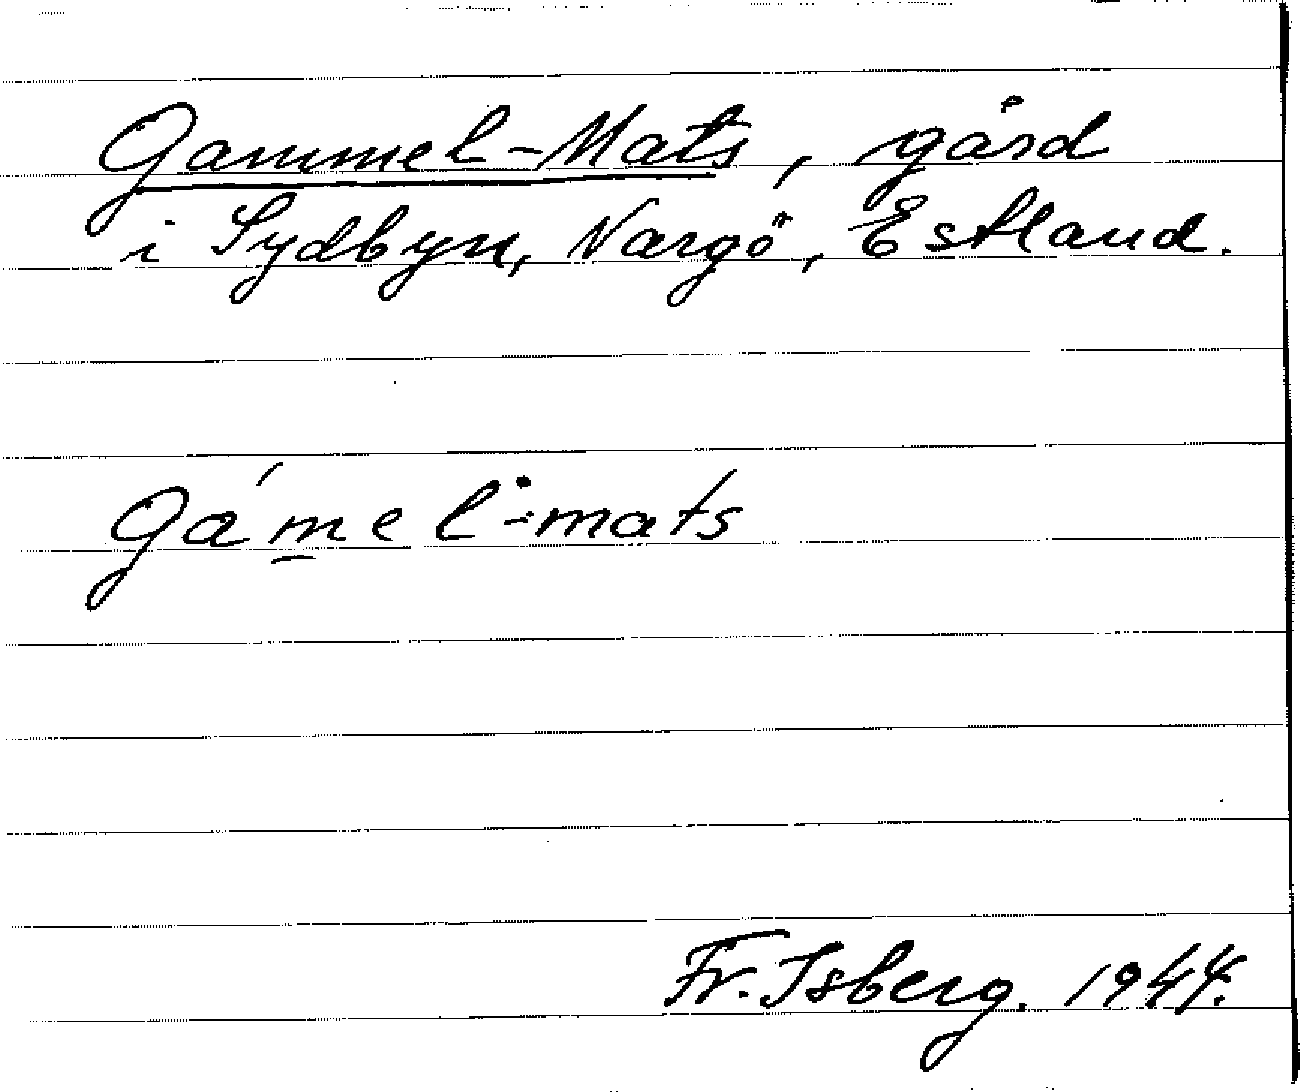 Gammel-Mats, gård
i Sydbyn, Nargö, Estland.
Gám̲el-mats
Fr. Isberg. 1944.